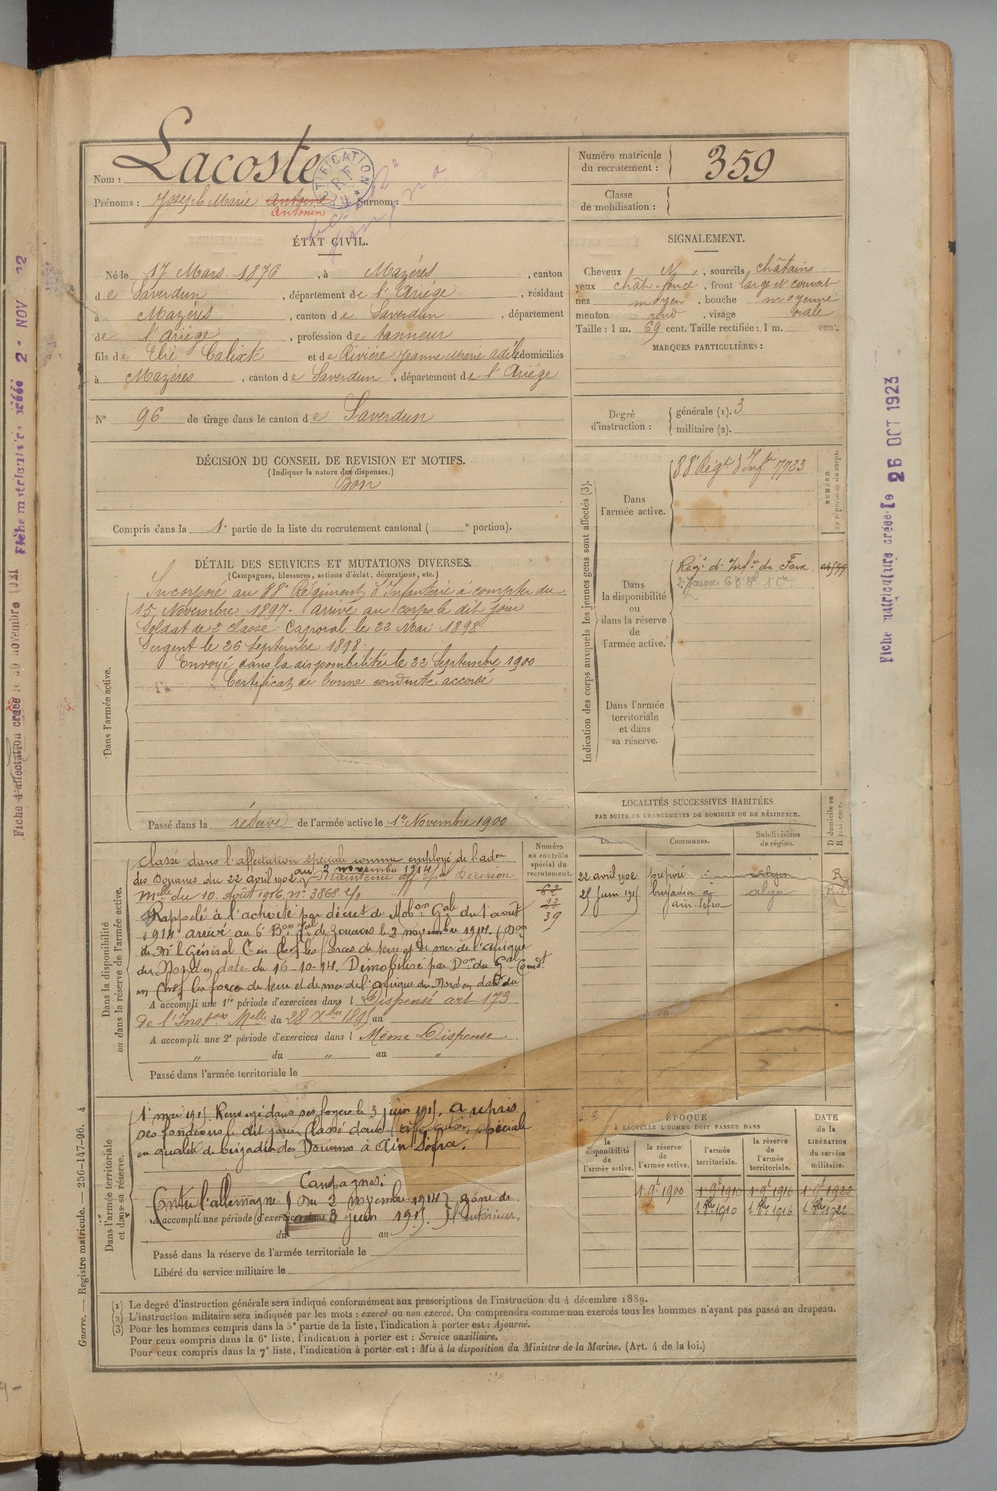 Nom : Lacoste
Prénoms : Joseph Marie Antoine Surnom :
Antonin
Numéro matricule du recrutement : 359
Classe de mobilisation :
ÉTAT CIVIL.
Né le 17 Mars 1876, à Mazéres, canton
de Saverdun, département de l'Ariège, résidant
à Mazéres, canton de Saverdun, département
de l'Ariège, profession de tanneur
fils de Elie Calixte et de Rivière Jeanne Marie Adèle domiciliés
à Mazéres, canton de Saverdun, département de l'Ariége
N° 96 de tirage dans le canton de Saverdun
SIGNALEMENT.
Cheveux N, sourcils châtains
yeux chât. foncé, front large et couvert
nez moyen, bouche moyenne
menton rond, visage ovale
Taille : 1 m. 69 cent. Taille rectifiée : 1 m. cent.
MARQUES PARTICULIÈRES :
Degré d'instruction : générale (1). 3
militaire (2).
DÉCISION DU CONSEIL DE REVISION ET MOTIFS.
(Indiquer la nature des dispenses.)
Bon
Compris dans la 1e partie de la liste du recrutement cantonal ( e portion).
DÉTAIL DES SERVICES ET MUTATIONS DIVERSES.
(Campagnes, blessures, actions d'éclat, décorations, etc.)
Dans l'armée active.
Incorporé au 88e Régiment d'Infanterie à compter du
15 Novembre 1897. arrivé au corps le dit jour
Soldat de 2e classe Caporal le 22 Mai 1898
Sergent le 26 Septembre 1898
Envoyé dans la disponibilité le 22 Septembre 1900
Certificat de bonne conduite accordé
Passé dans la réserve de l'armée active le 1er Novembre 1900
Indication des corps auxquels les jeunes gens sont affectés (3).
Dans l'armée active.
88e Régt d'Inf. 7723
Dans la disponibilité ou dans la réserve de l'armée active.
Rég. d'Inf. de Foix
Dans l'armée territoriale et dans sa réserve.
LOCALITÉS SUCCESSIVES HABITÉES
PAR SUITE DE CHANGEMENTS DE DOMICILE OU DE RÉSIDENCE.
Communes.
Subdivisions de région.
22 avril 1902
Dans la disponibilité ou dans la réserve de l'armée active.
Numéro au contrôle spécial du recrutement.
39
Classé dans l'affectation spéciale comme employé de l'adon
des Douanes du 22 avril 1902 au 2 novembre 1914
Mlle du 10 Août 1916 n° 3868
Rappelé à l'activité par décret de Mobon Gale du 1 août
1914 arrivé au 6e Bon de Zouaves le 2 novembre 1914. (Don
de Mr le Général Ct en Chef les forces de terre et de mer de l'afrique
du Nord en date du 16-10-14. Démobilisé par Don du Gal Comdt
en Chef les forces de terre et de mer de l'afrique du Nord en date du
A accompli une 1re période d'exercices dans l Dispensé art 173
de l'Inston Mlle du 28 Xbre 1895 au
A accompli une 2e période d'exercices dans l Même Dispense
du au
Passé dans l'armée territoriale le
Dans l'armée territoriale et dans sa réserve.
1er mai 1915 Renvoyé dans ses foyers le 3 juin 1915. a repris
ses fonctions le dit jour Classé dans l'affectation spéciale
en qualité de brigadier des Douanes à Ain Sefra.
Campagnes :
Contre l'allemagne du 2 novembre 1914
A accompli une période d'exercices dans 3 juin 1915
du au
Passé dans la réserve de l'armée territoriale le
Libéré du service militaire le
ÉPOQUE
À LAQUELLE L'HOMME DOIT PASSER DANS
la disponibilité de l'armée active.
la réserve de l'armée active.
l'armée territoriale.
la réserve de l'armée territoriale.
DATE de la LIBÉRATION du service militaire.
1 9bre 1900 1 9bre 1910 1 9bre 1916 1 9bre 1922
(1) Le degré d'instruction générale sera indiqué conformément aux prescriptions de l'instruction du 4 décembre 1889.
(2) L'instruction militaire sera indiquée par les mots : exercé ou non exercé. On comprendra comme non exercés tous les hommes n'ayant pas passé au drapeau.
(3) Pour les hommes compris dans la 5e partie de la liste, l'indication à porter est : Ajourné.
Pour ceux compris dans la 6e liste, l'indication à porter est : Service auxiliaire.
Pour ceux compris dans la 7e liste, l'indication à porter est : Mis à la disposition du Ministre de la Marine. (Art. 4 de la loi.)
Guerre. — Registre matricule. — 256-147-96. 4
Fiche matriculaire créée le 26 OCT 1923